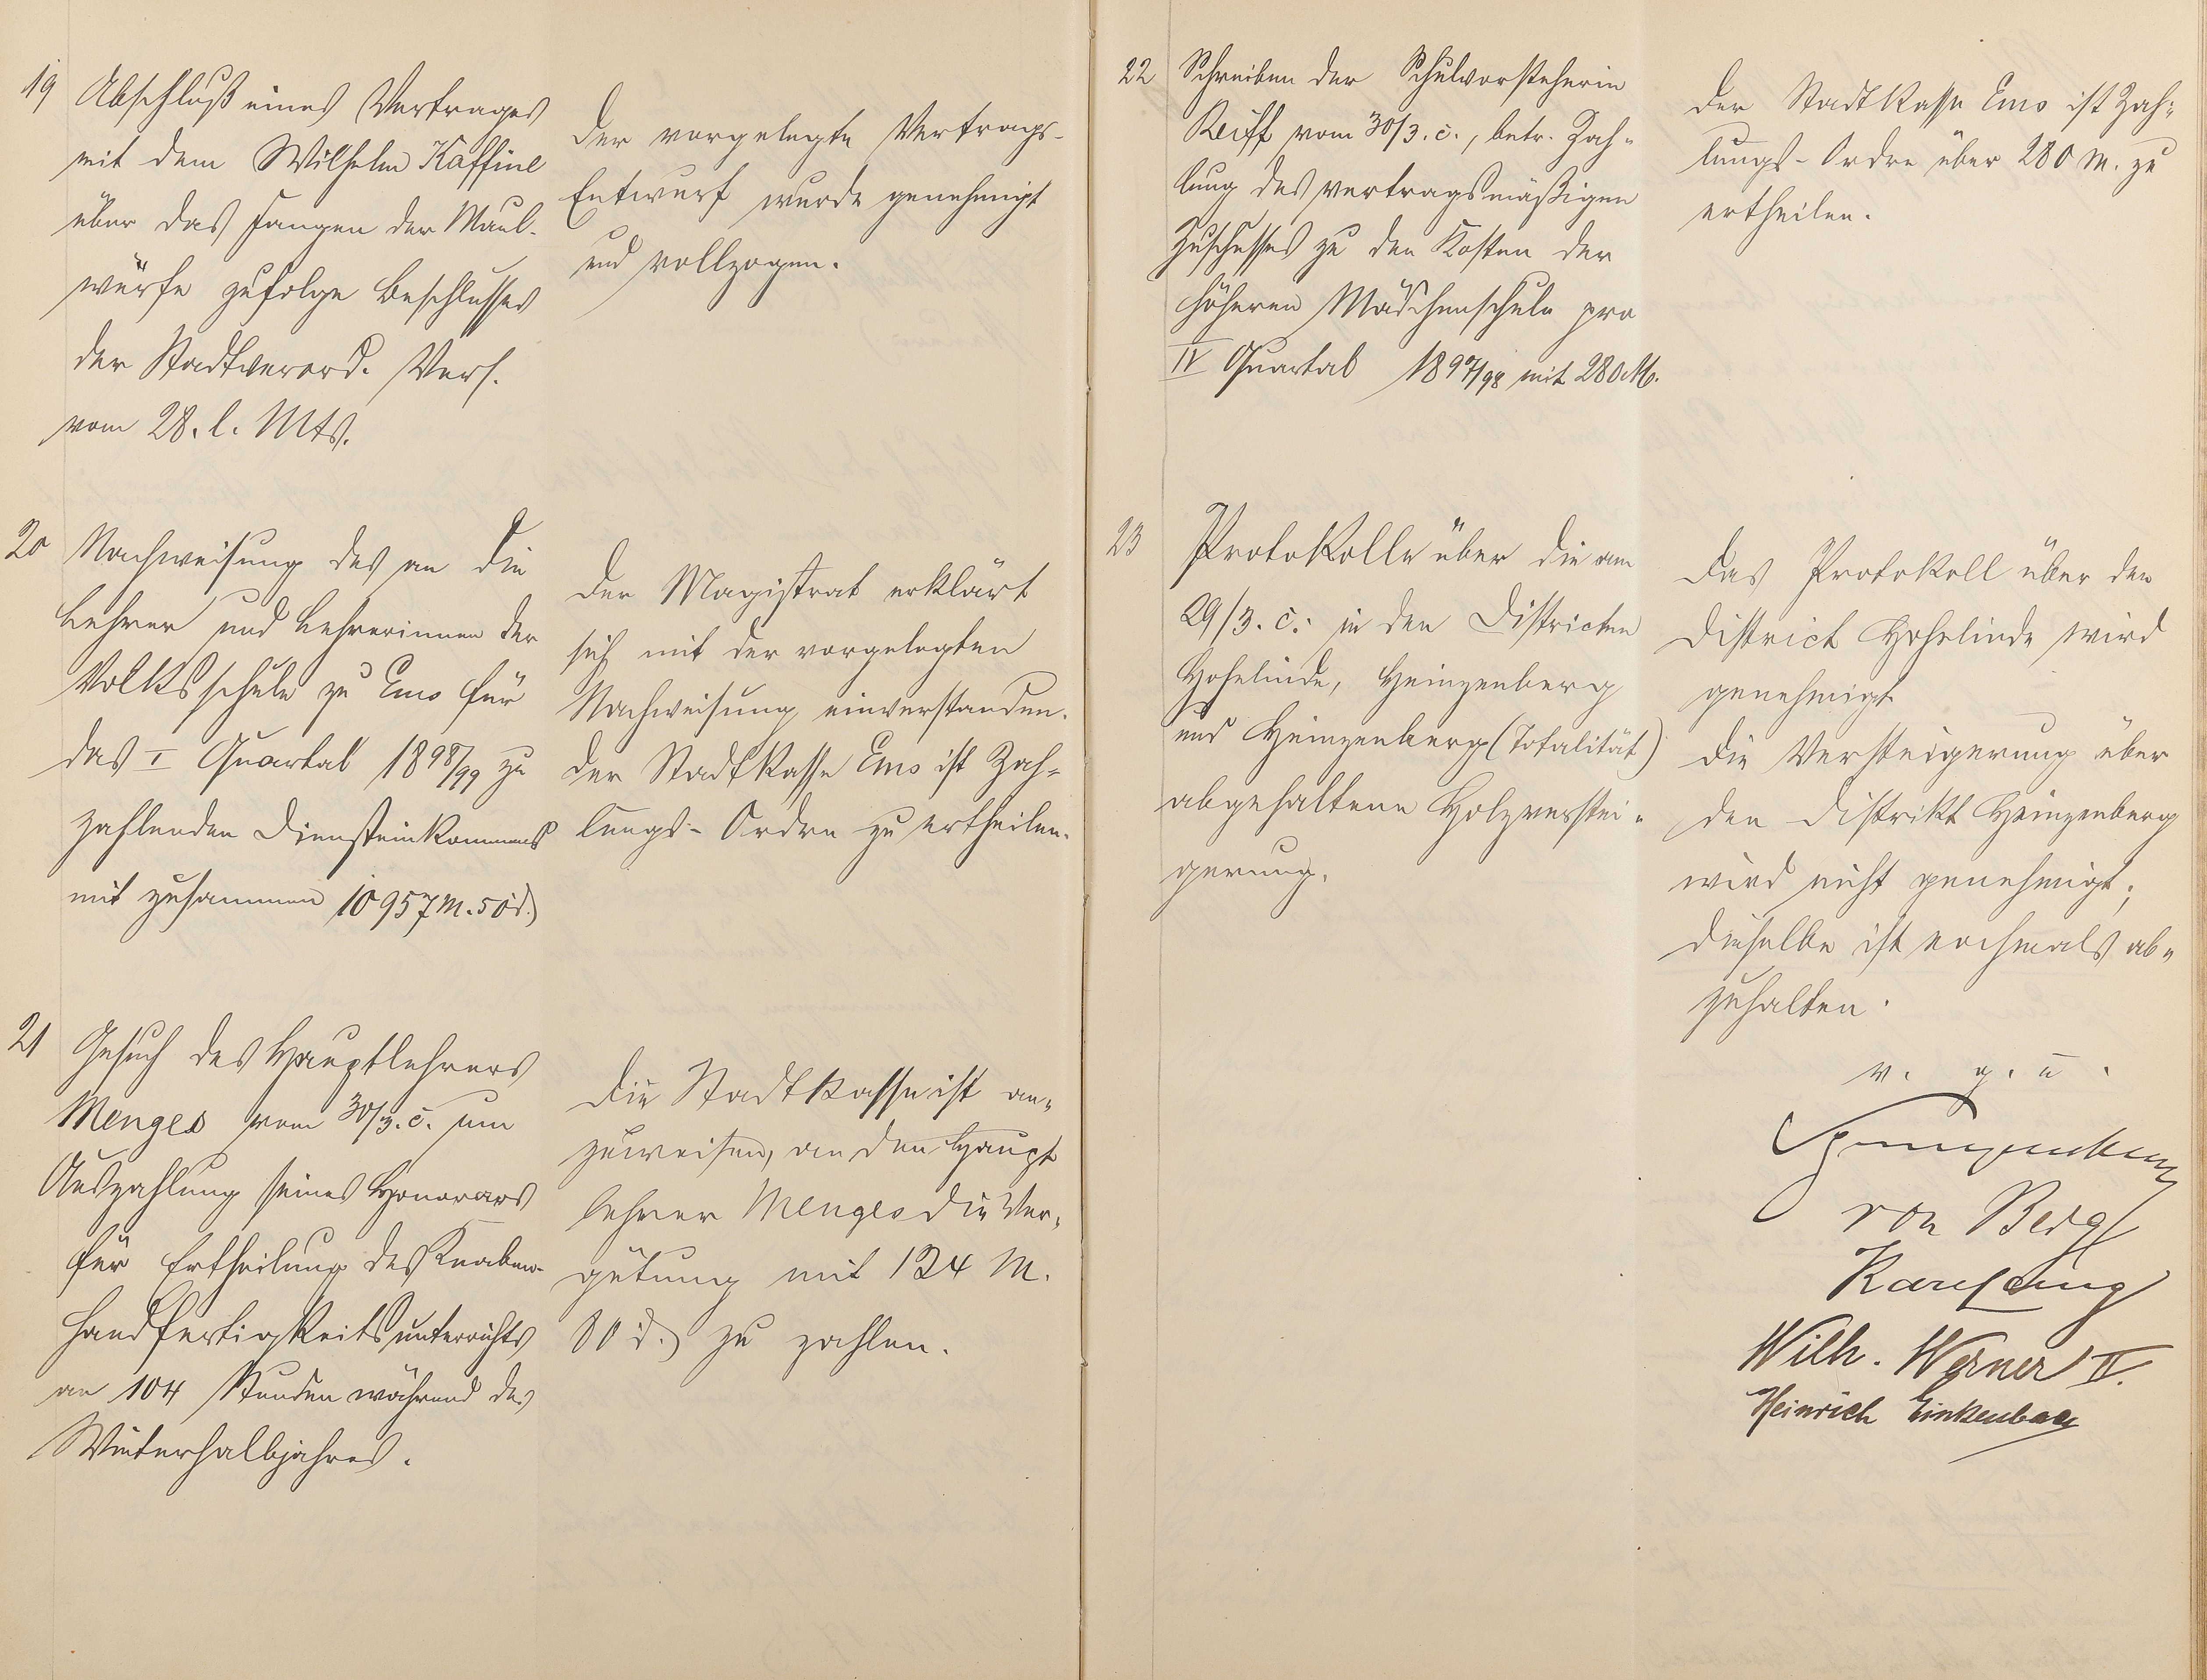 19
Abschluß eines Vertrages
mit dem Wilhelm Kaffine
über das Fangen der Maul-
würfe zufolge Beschlusses
der Stadtverord. Vers.
vom 28. l. Mts.
Der vorgelegte Vertrags-
Entwurf wurde genehmigt
und vollzogen.
20
Nachweisung des an die
Lehrer und Lehrerinnen der
Volksschule zu Ems für
das I Quartal 1898/99 zu
zahlenden Diensteinkommens
mit zusammen 10957 M. 50 d.)
Der Magistrat erklärt
sich mit der vorgelegten
Nachweisung einverstanden.
Der Stadtkasse Ems ist Zah-
lungs-Ordre zu ertheilen.
21
Gesuch des Hauptlehrers
Menges vom 30/3. c. um
Auszahlung seines Honorars
für Ertheilung des Knaben-
handfertigkeitsunterrichts
an 104 Stunden während des
Winterhalbjahres.
Die Stadtkasse ist an-
zuweisen, an den Haupt
lehrer Menges die Ver-
gütung mit 124 M.
80 d.) zu zahlen.
22
Schreiben der Schulvorsteherin
Reiff vom 30/3. c., betr. Zah-
lung des vertragsmäßigen
Zuschusses zu den Kosten der
höheren Mädchenschule pro
IV Quartal 1897/98 mit 280 M.
Der Stadtkasse Ems ist Zah-
lungs-Ordre über 280 M. zu
ertheilen.
23
Protokolle über die am
29/3. c. in den Districten
Hohelinde, Heinzenberg
und Heinzenberg (Totalität)
abgehaltene Holzverstei-
gerung.
Das Protokoll über den
District Hohelinde wird
genehmigt
Die Versteigerung über
den Distrikt Heinzenberg
wird nicht genehmigt;
dieselbe ist nochmals ab-
zuhalten.
v. g. u.
von Berg
Wilh. Werner II.
Heinrich Linkenbach